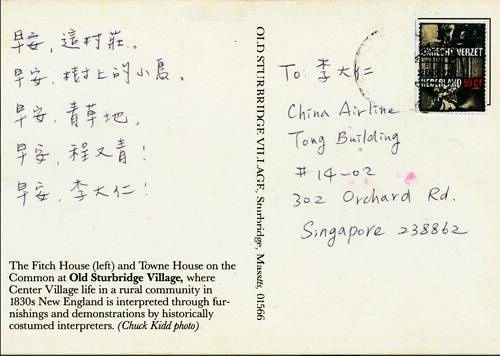 早安，這村莊。
早安，樹上的小鳥。
早安，青草地。
早安，程又青！
早安，李大仁！
The Fitch House (left) and Towne House on the
Common at Old Sturbridge Village, where
Center Village life in a rural community in
1830s New England is interpreted through fur-
nishings and demonstrations by historically
costumed interpreters. (Chuck Kidd photo)
OLD STURBRIDGE VILLAGE, Sturbridge, Masstts. 01566
VERZET
NEDERLAND
To: 李大仁
China Airline
Tong Building
#14-02
302 Orchard Rd.
Singapore 238862